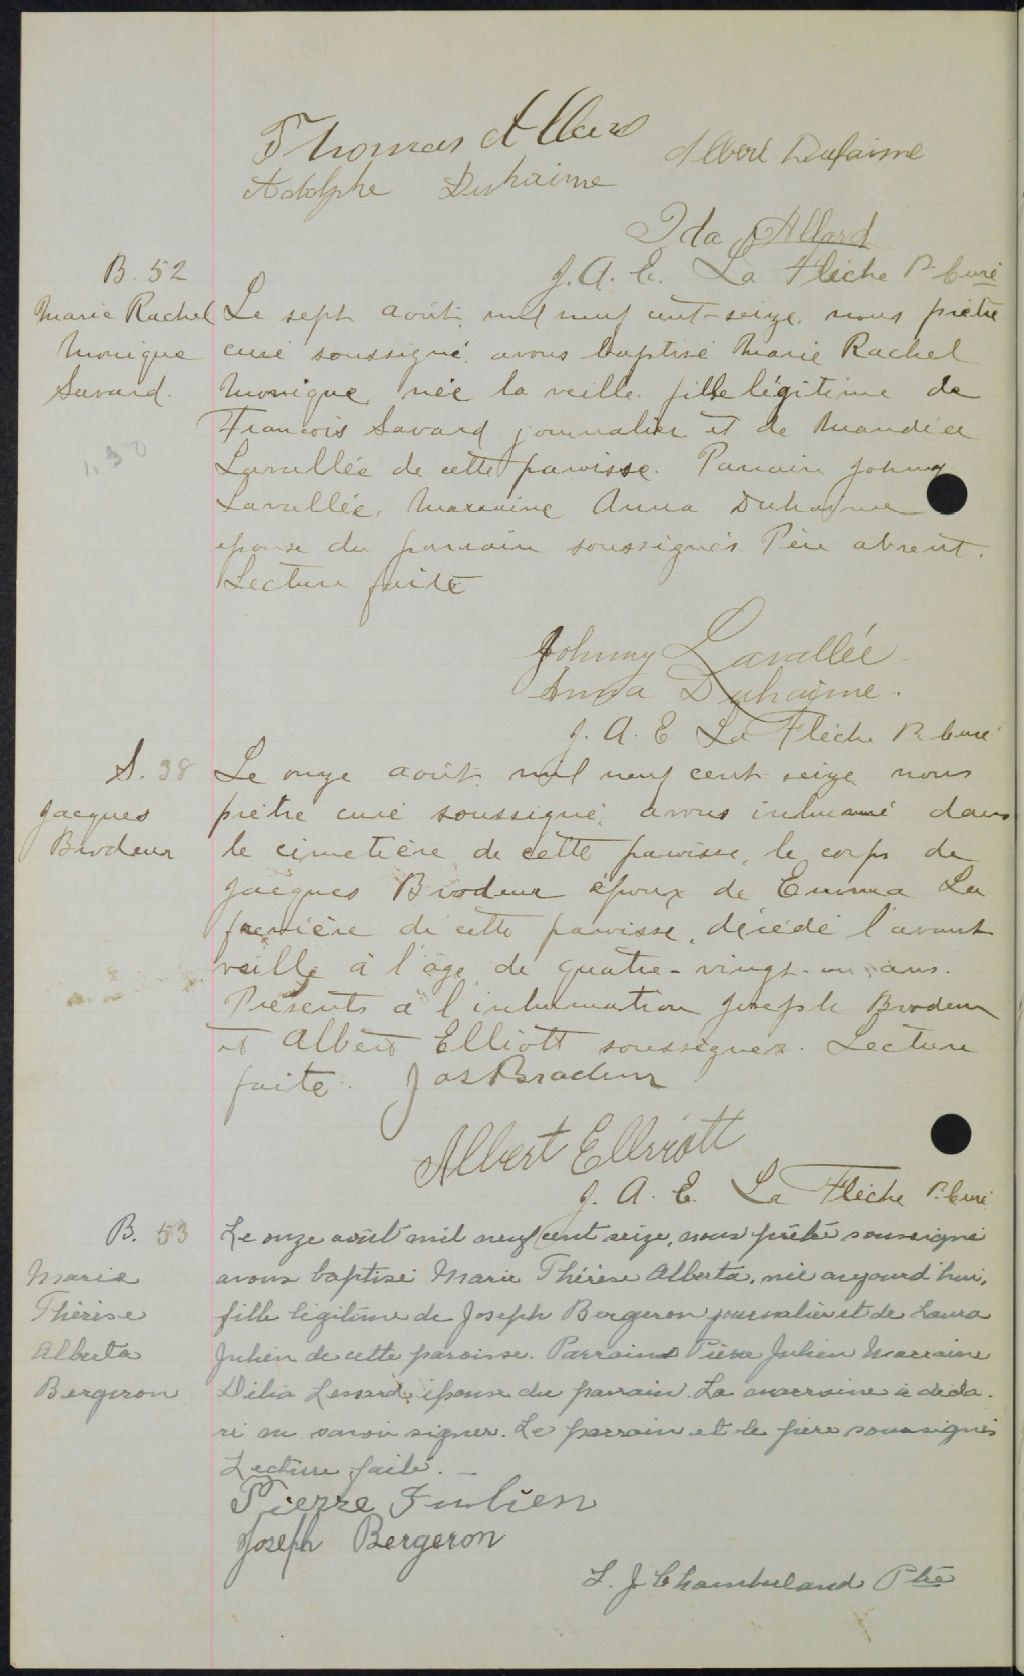 Thomas Allard
Albert Duhaime
Adolphe Duhaime
Ida Allard
J. A. E. La Flèche P. Curé
B. 52
Marie Rachel
Monique
Savard.
1.50
Le sept août mil neuf cent-seize, nous prêtre
curé soussigné avons baptisé Marie Rachel
Monique née la veille fille légitime de
François Savard journalier et de
Lavallée de cette paroisse. Parrain Johnny
Lavallée, Marraine Anna Duhaime
épouse du parrain soussignés. Père absent.
Lecture faite
Johnny Lavallée.
Anna Duhaime.
J. A. E La Flèche P. Curé
S. 38
Jacques
Brodeur
Le onze août mil neuf cent-seize nous
prêtre curé soussigné, avons inhumé dans
le cimetière de cette paroisse, le corps de
Jacques Brodeur époux de Emma La
frenière de cette paroisse, décédé l'avant
veille à l'âge de quatre-vingt-un ans.
Présents à l'inhumation Joseph Brodeur
et Albert Elliott soussignés. Lecture
faite. Jos Brodeur
Albert Elliott
J. A. E. La Flèche P. Curé
B. 53
Marie
Thérèse
Alberta
Bergeron
Le onze août mil neuf cent seize, nous prêtre soussigné
avons baptisé Marie Thérèse Alberta, née aujourd'hui,
fille légitime de Joseph Bergeron journalier et de Laura
Julien de cette paroisse. Parrain Pierre Julien Marraine
Délia Lessard épouse du parrain. La marraine a décla-
ré ne savoir signer. Le parrain et le père soussignés
Lecture faite. -
Pierre Julien
Joseph Bergeron
L. J Chamberland Ptre